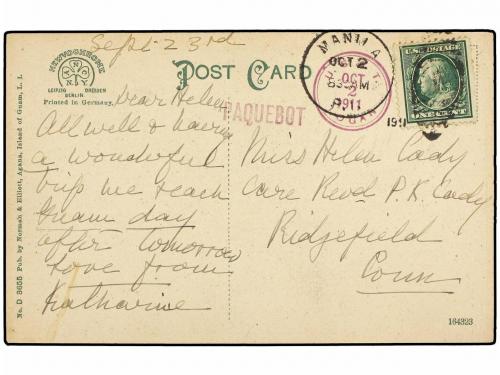 Sept 23rd
NEWVOCHROME
A N N Co
LEIPZIG DRESDEN
BERLIN
Printed in Germany.
POST CARD
Dear Helen
All well & having
a wonderful
trip we reach
Guam day
after tomorrow
Love from
Katharine
PAQUEBOT
MANILA
OCT 2
1911
OCT
2
1911
U.S. POSTAGE
ONE CENT
191
Miss Helen Cady
Care Revd P.K. Cady
Ridgefield
Conn
No. D 3655 Pub. by Normah & Elliott, Agana, Island of Guam, L. I.
164323